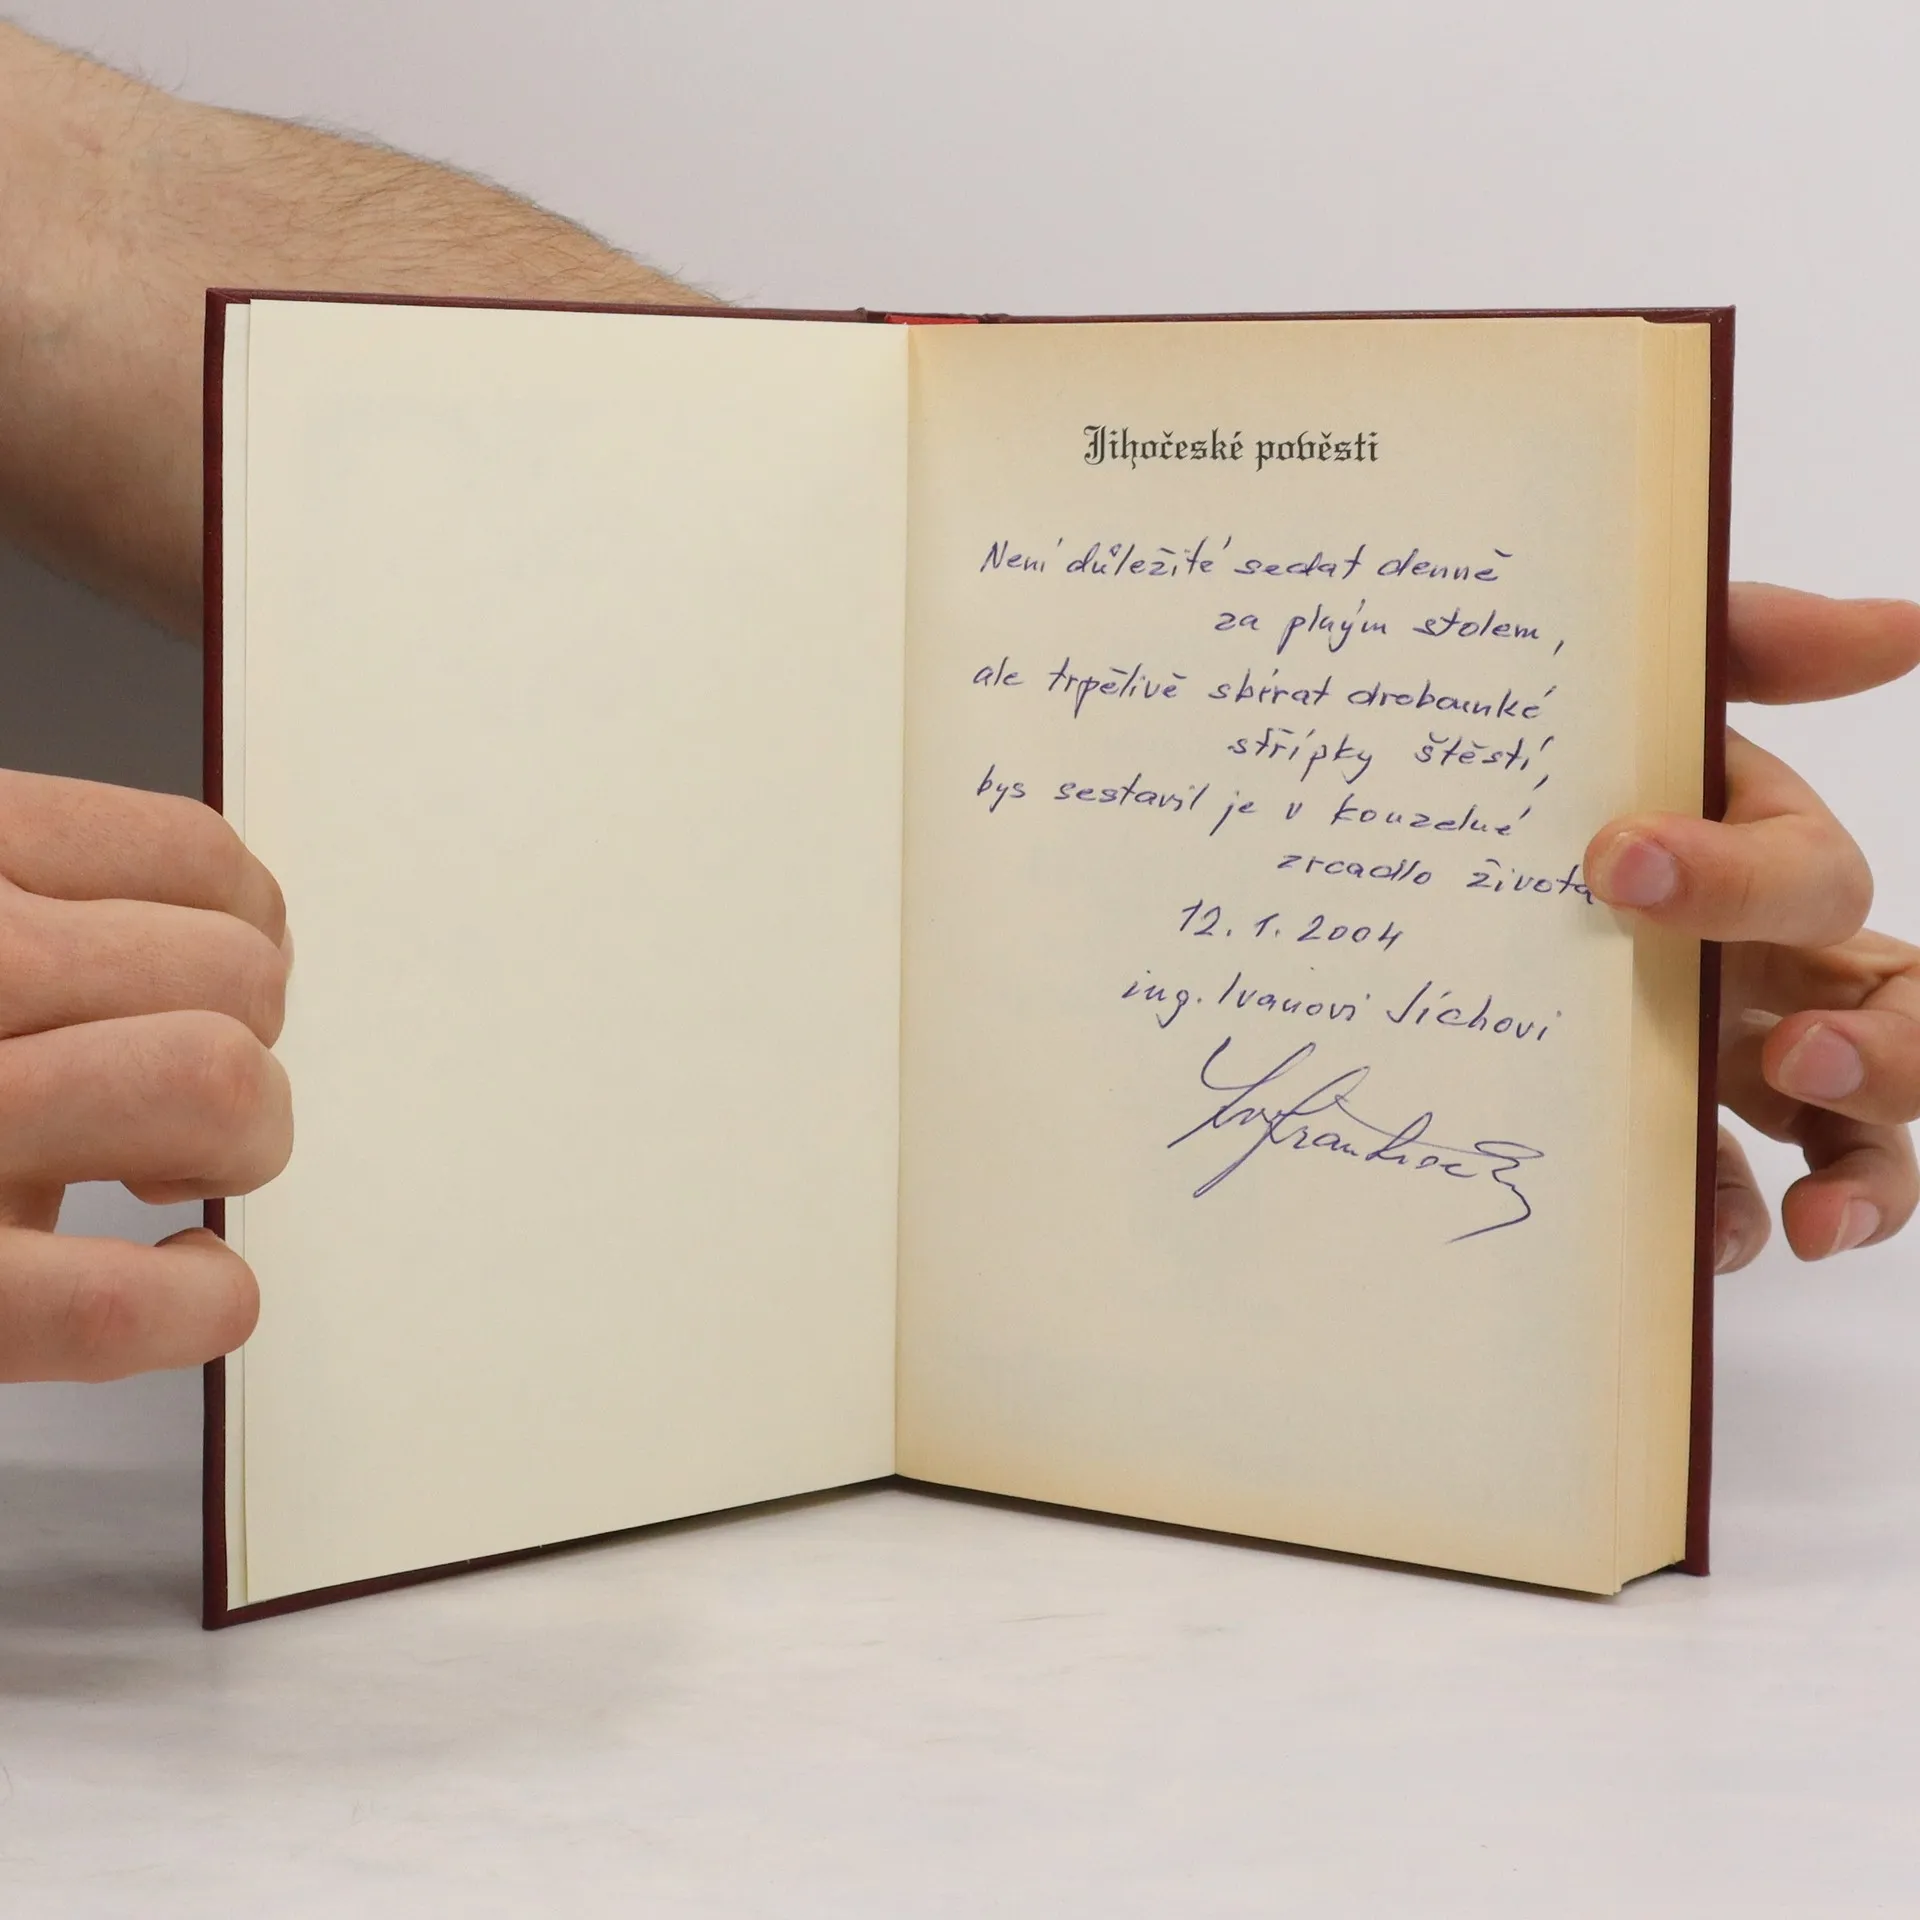 Jihočeské pověsti
Není důležité sedat denně
za plným stolem,
ale trpělivě sbírat drobounké
střípky štěstí,
bys sestavil je v kouzelné
zrcadlo života
12. 1. 2004
ing. Ivanovi Jíchovi